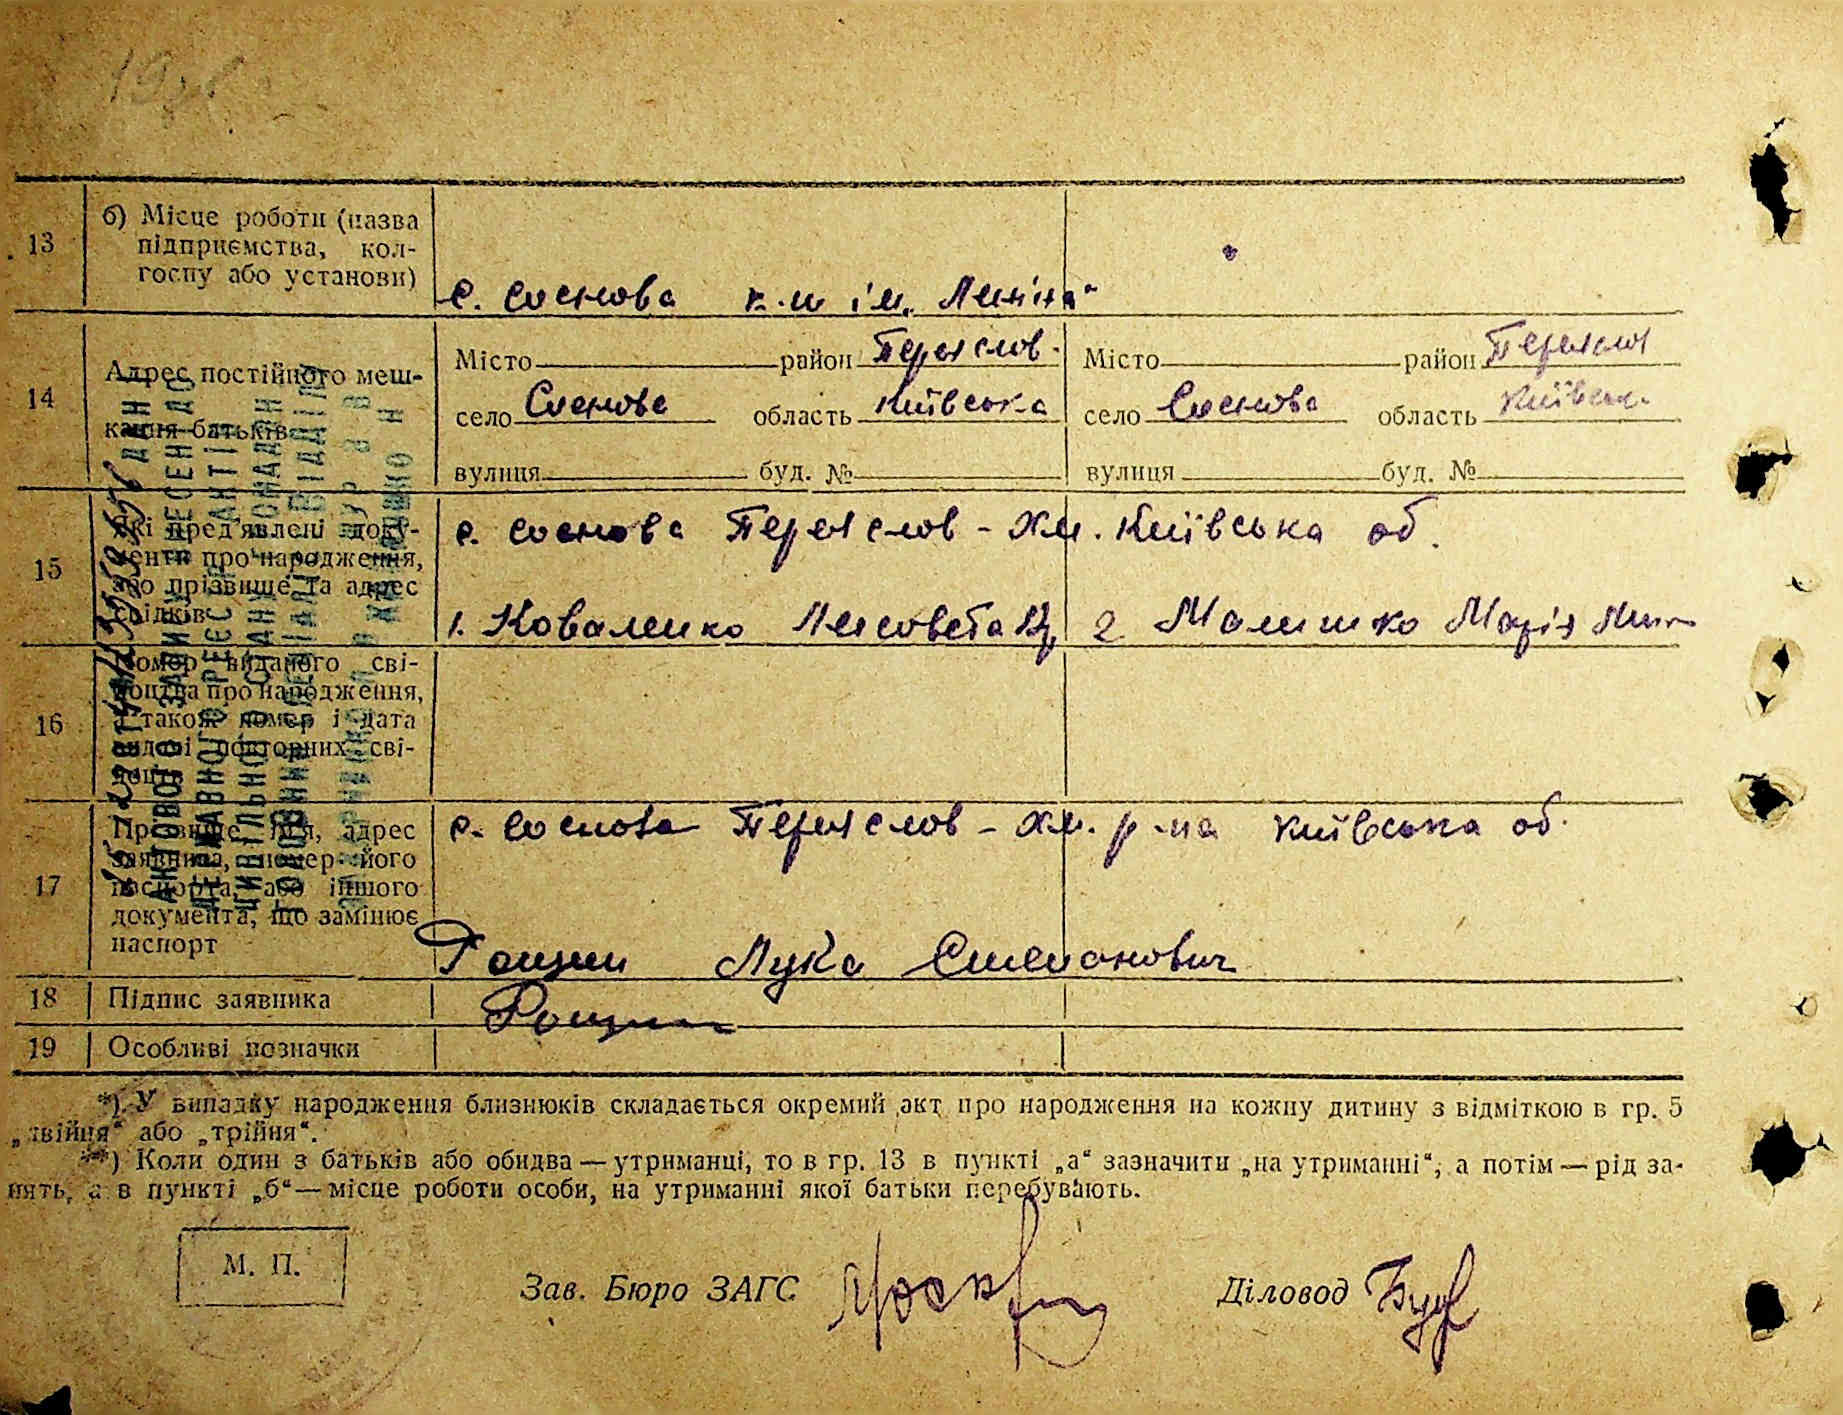 13 б) Місце роботи (назва
підприємства, кол-
госпу або установи)
с. Соснова к-п ім. Леніна"
14 Адрес постійного меш-
кання батьків
Місто район Переяслов.
село Соснова область Київська
вулиця буд. №
Місто район Переяслов
село Соснова область Київськ.
вулиця буд. №
15 Які пред'явлені доку-
менти про народження,
або прізвище та адрес
свідків
с. Соснова Переяслов - Хм. Київська об.
1. Коваленко 2 Малишко Марія
16 Номер виданого сві-
доцтва про народження,
а також номер і дата
видачі повторних сві-
доцтв
17 Прізвище, ім'я, адрес
заявника, номер його
паспорта, або іншого
документа, що замінює
паспорт
с. Соснова Переяслов - Хм. р-на Київська об.
Рощин Лука Степанович
18 Підпис заявника Рощин
19 Особливі позначки
*) У випадку народження близнюків складається окремий акт про народження на кожну дитину з відміткою в гр. 5
„двійня“ або „трійня“.
**) Коли один з батьків або обидва — утриманці, то в гр. 13 в пункті „а“ зазначити „на утриманні“, а потім — рід за-
нять, а в пункті „б“ — місце роботи особи, на утриманні якої батьки перебувають.
М. П.
Зав. Бюро ЗАГС
Діловод